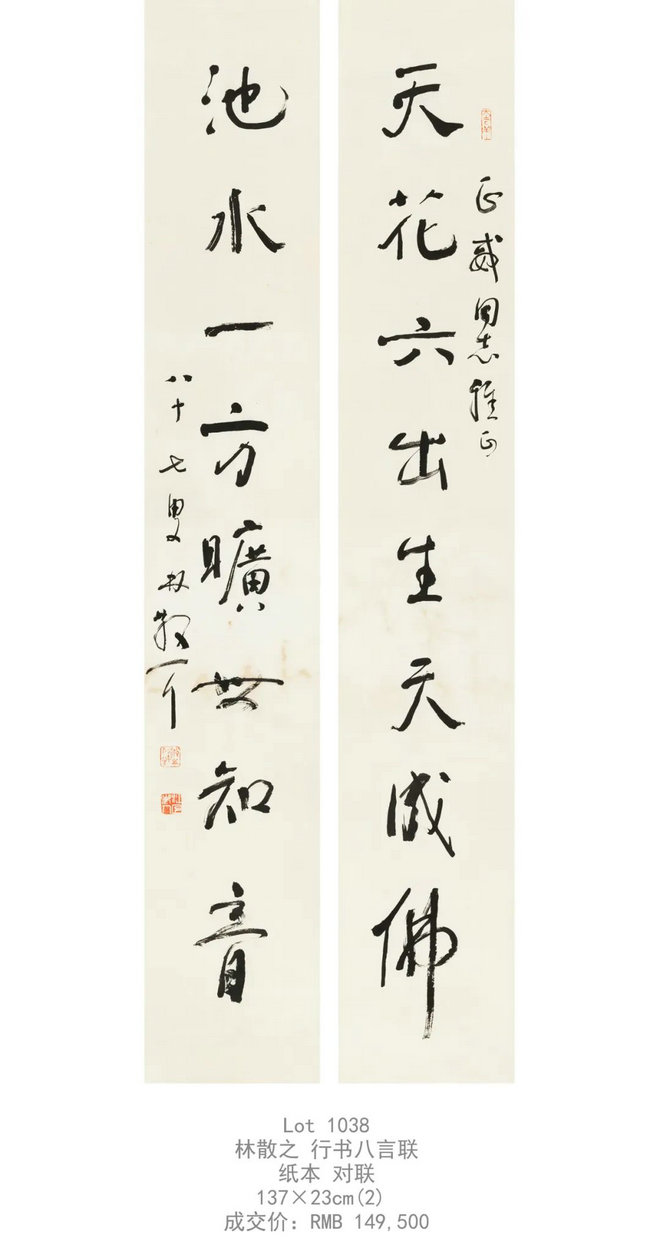 天花六出生天成佛
正威同志雅正
池水一方曠世知音
八十七叟林散耳
Lot 1038
林散之 行书八言联
纸本 对联
137×23cm(2)
成交价：RMB 149,500